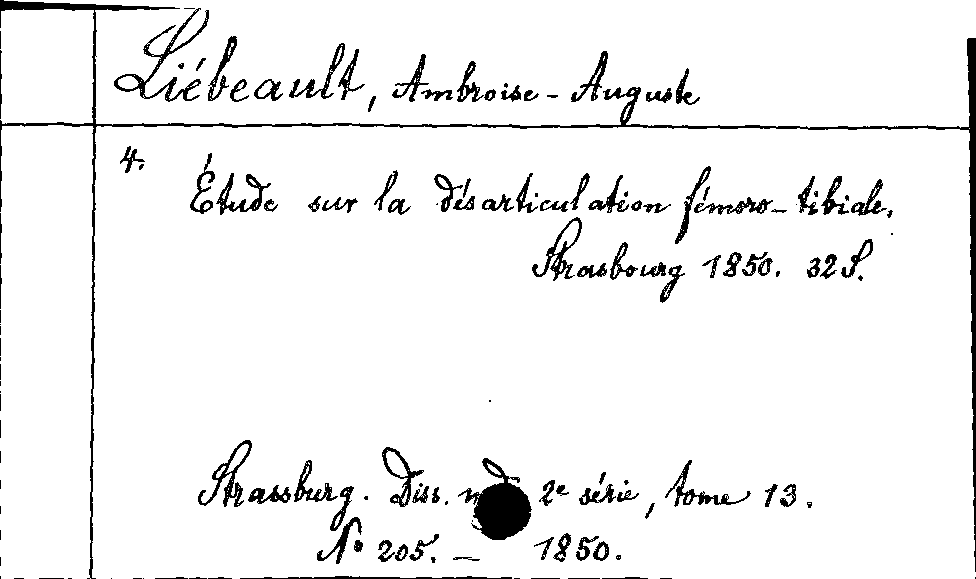 Liébeault, Ambroise-Auguste
4.
Étude sur la désarticulation fémoro-tibiale.
Strasbourg 1850. 32 S.
Strassburg. Diss. 2e série, tome 13.
No 205. — 1850.